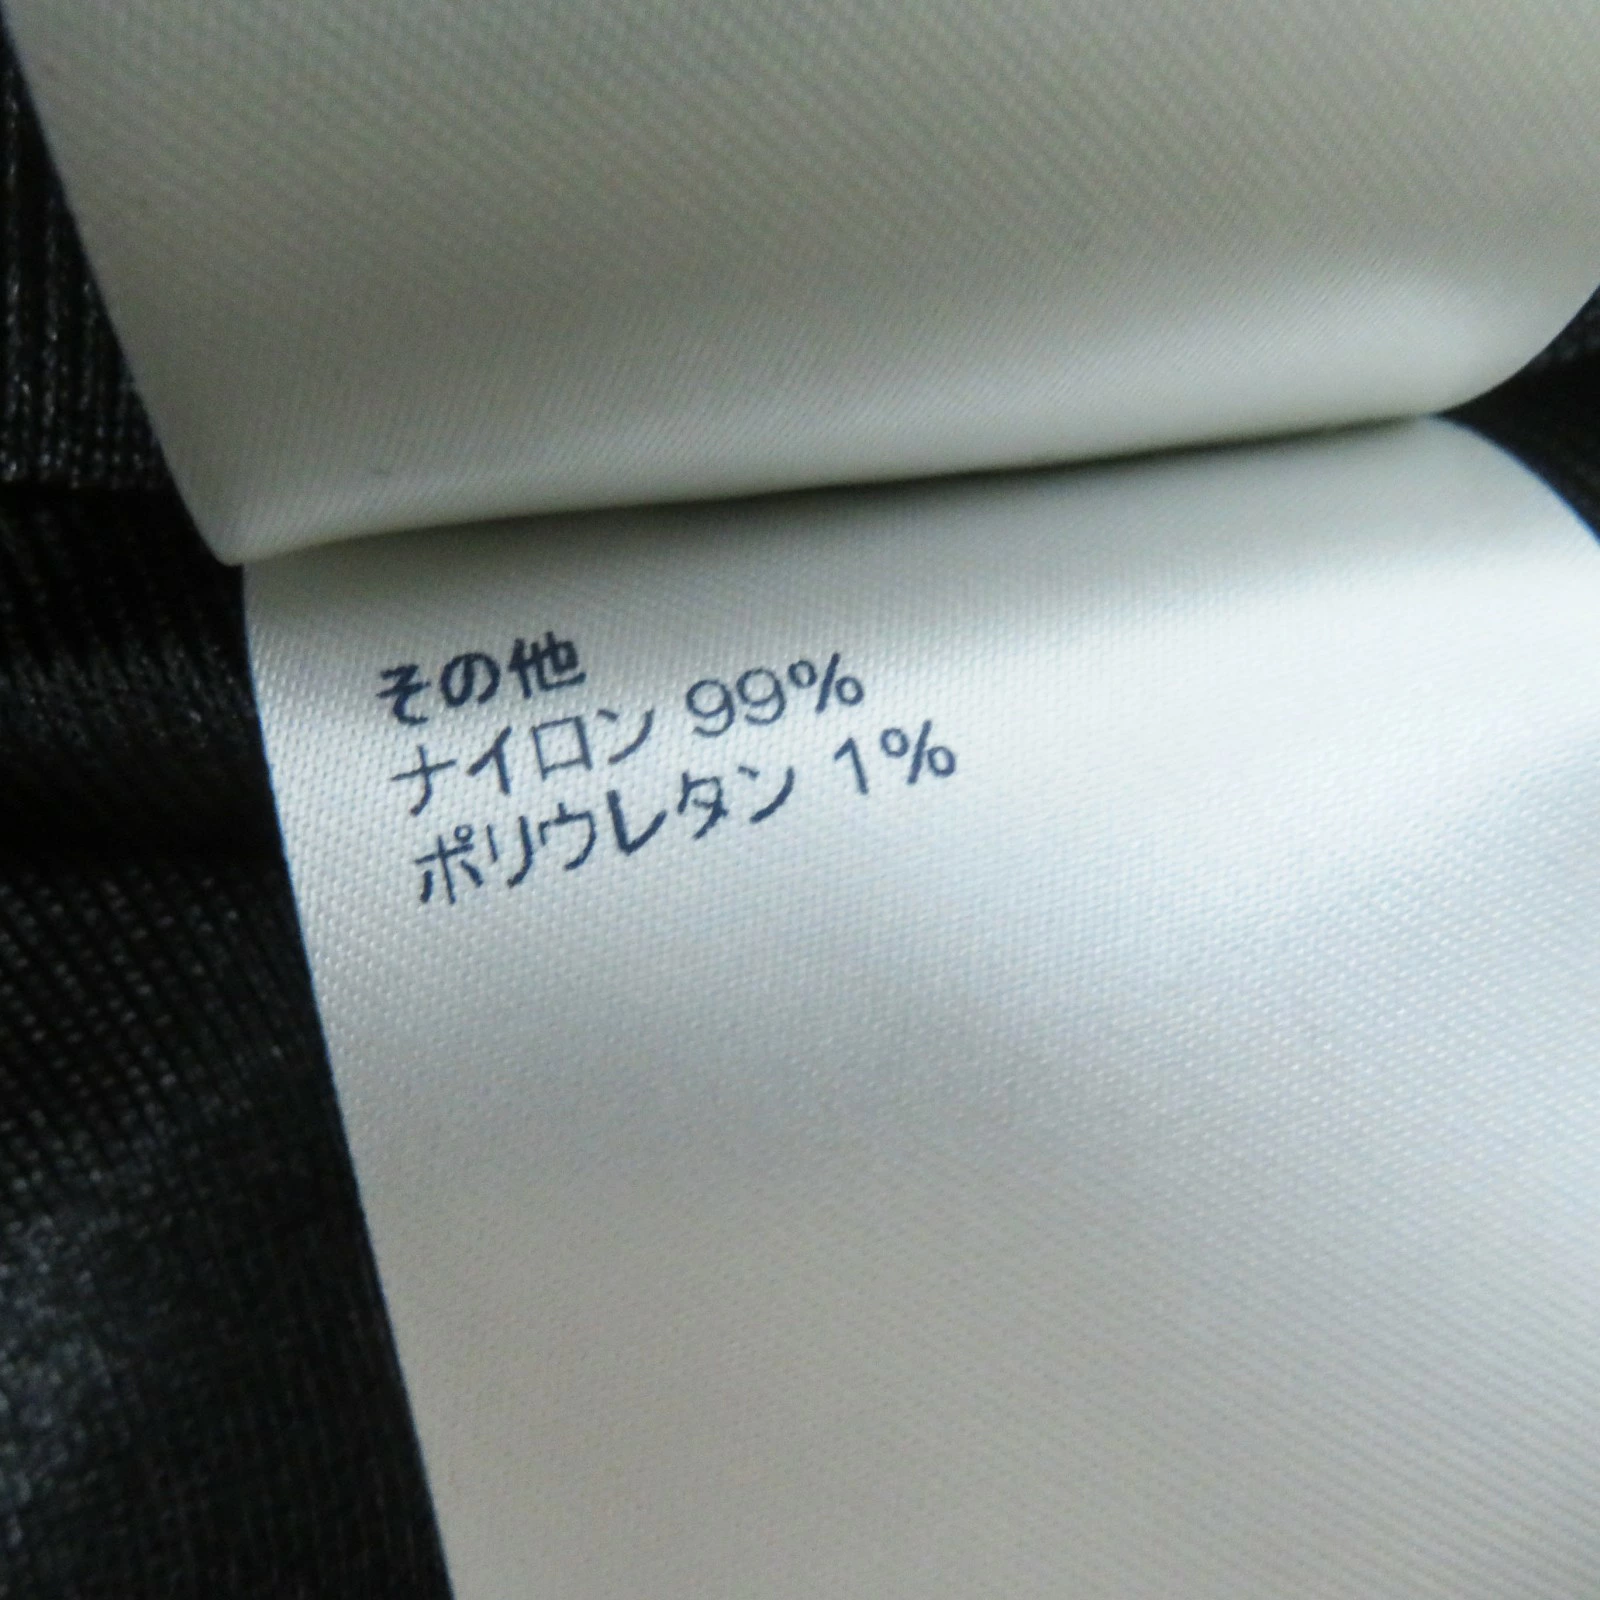 その他
ナイロン 99%
ポリウレタン 1%